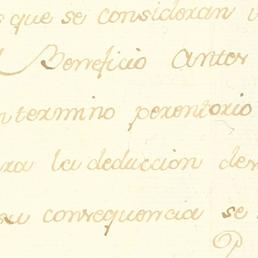 s que se consideran
Beneficio Anter
n termino perentorio
ra la deducción de
su consequencia se